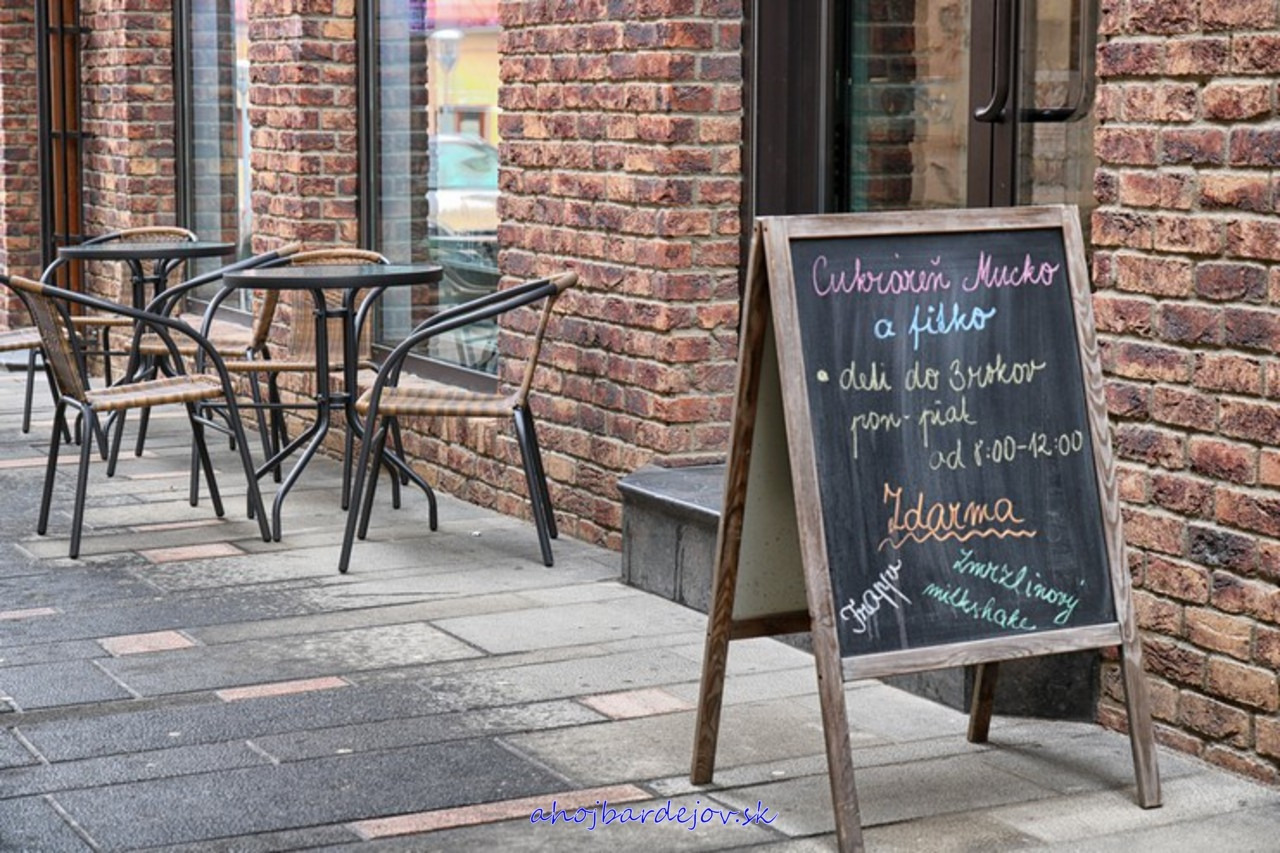 Cukráreň Mucko
a fitko
• deti do 3 rokov
pon-piat
od 8:00-12:00
Zdarma
Frappe
Zmrzlinový
milkshake
ahojbardejov.sk